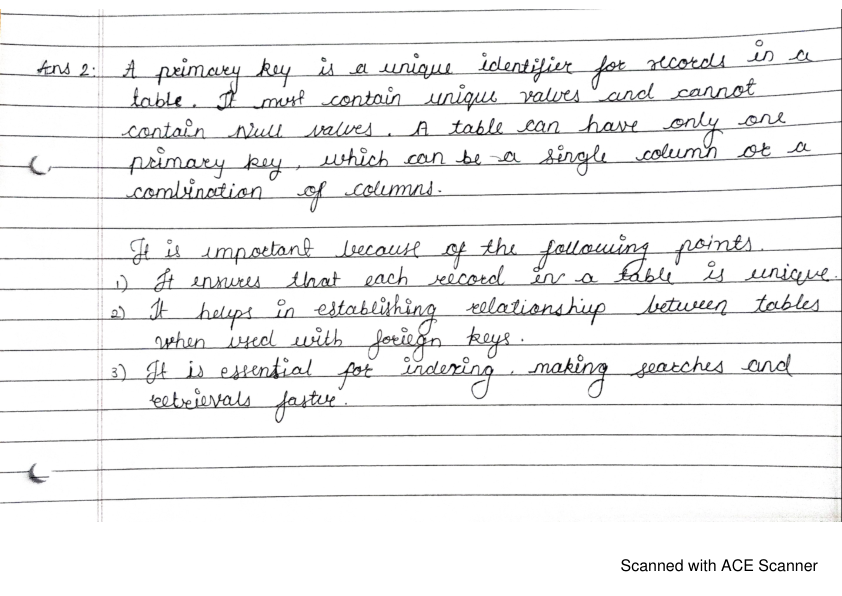 Ans 2: A primary key is a unique identifier for records in a
table. It must contain unique values and cannot
contain Null values. A table can have only one
primary key, which can be a single column or a
combination of columns.
It is important because of the following points.
1) It ensures that each record in a table is unique.
2) It helps in establishing relationship between tables
when used with foriegn keys.
3) It is essential for indexing, making searches and
retrievals faster.
Scanned with ACE Scanner